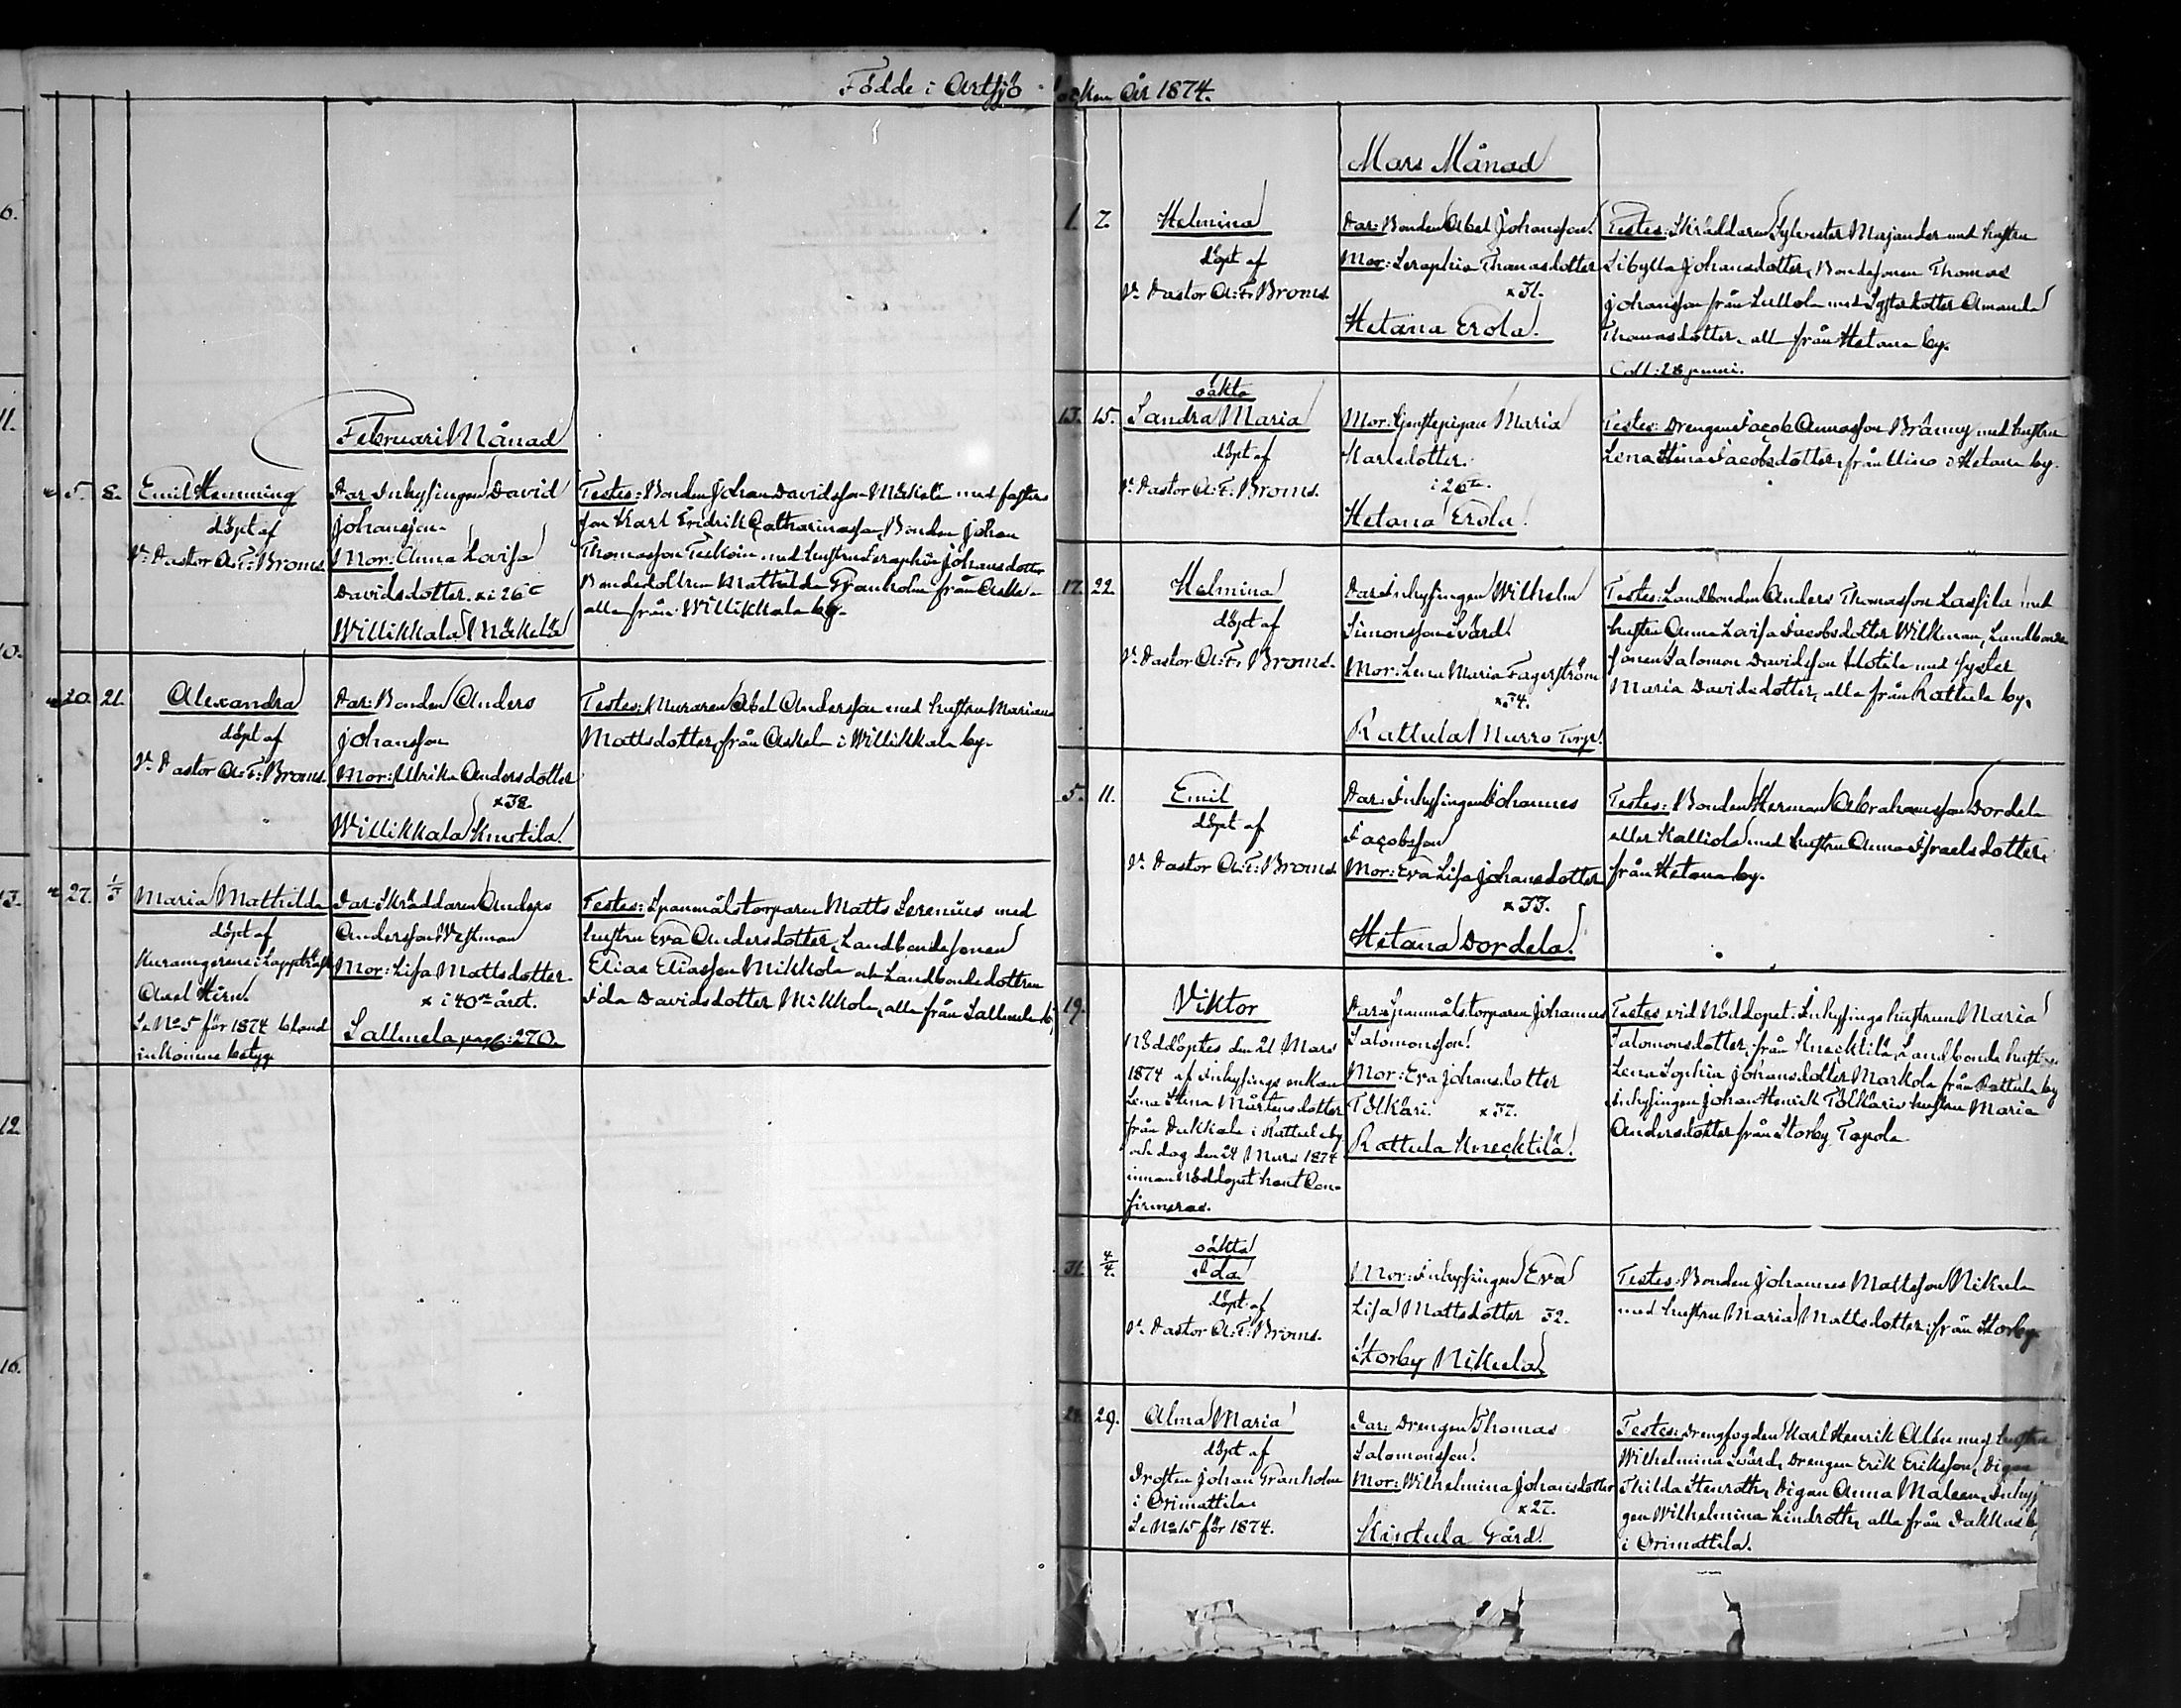 Födde i Artsjö socken År 1874.
Februari Månad
5. 8. Emil Hemming
döpt af
V. Pastor A: F: Broms
Far: Inhysingen David
Johansson
Mor: Anna Lovisa
Davidsdotter. x i 26te
Willikkala Mäkelä
Testes: Bonden Johan Davidsson Mäkelä med fasters
son Karl Fridrik Catharinasson, Bonden Johan
Thomasson med hustru Seraphia Johansdotter
Bondedottren Mathilda Granholm från Askela
alla från Willikkala by.
20. 21. Alexandra
döpt af
V. Pastor A: F: Broms.
Far: Bonden Anders
Johansson
Mor: Ulrika Andersdotter
x 38.
Willikkala Knutila.
Testes: Muraren Abel Andersson med hustru Mariana
Mattsdotter, från Askela i Willikkala by.
27. 1/3 Maria Mathilda
döpt af
i Lappträsk
Axel Hirn.
Se No 5 för 1874 bland
inkomne betyg
Far: Skräddaren Anders
Andersson Westman
Mor: Lisa Mattsdotter
x i 40de året.
Sallmela pag: 270.
Testes: Spanmålstorparen Matts Serenius med
hustru Eva Andersdotter, Landbondesonen
Elias Eliasson Mikkola och Landbondedottren
Ida Davidsdotter Mikkola, alla från Sallmela b;
Mars Månad
1. 7. Helmina
döpt af
V. Pastor A: F: Broms.
Far: Bonden Abel Johansson.
Mor: Seraphia Thomasdotter
x 31.
Hetana Erola.
Testes: Skräddaren Sylvester Majander med hustru
Sibylla Johansdotter, Bondesonen Thomas
Johansson från med Systerdotter Amanda
Thomasdotter, all från Hetana by.
Coll: 28 juni.
13. 15. oäkta
Sandra Maria
döpt af
V. Pastor A: F: Broms.
Mor: Tjenstepigan Maria
Karlsdotter.
i 26te.
Hetana Erola.
Testes: Drengen Jacob Annasson Bränny med hustru
Lena Stina Jacobsdotter, från Uino i Hetana by.
17. 22. Helmina
döpt af
V. Pastor A: F: Broms.
Far: Inhysingen Wilhelm
Simonsson Svärd.
Mor: Lena Maria Fagerström
x 34.
Rattula Murro Torp.
Testes: Landbonden Anders Thomasson Lassila med
hustru Anna Lovisa Jacobsdotter Wilkman, Landbonde
sonen Salomon Davidsson Hotila med syster
Maria Davidsdotter, alla från Rattula by.
5. 11. Emil
döpt af
V. Pastor A: F: Broms.
Far: Inhysingen Johannes
Jacobsson
Mor: Eva Lisa Johansdotter
x 33.
Hetana Pordela.
Testes: Bonden Herman Abrahamsson Pordela
eller Kalliola med hustru Anna Israelsdotter
från Hetana by.
19. Viktor
Nöddöptes den 21 Mars
1874 af Inhysings enkan
Lena Stina Mårtensdotter
från i Rattula by
och dog den 24 Mars 1874
innan Nöddopet hant Con-
firmeras.
Far: Spanmålstorparen Johannes
Salomonsson.
Mor: Eva Johansdotter
Tölkäri. x 37.
Rattula Knecktilä.
Testes vid Nöddopet: Inhysings hustrun Maria
Salomonsdotter, från Knecktilä, Landbonde hustrun
Lena Sophia Johansdotter Markola från Rattula by
Inhysingen Johan Henrik Tölkäris hustru Maria
Andersdotter från Storby Tapola
31. 4/4. oäkta
Ida
döpt af
V. Pastor A: F: Broms.
Mor: Inhysingen Eva
Lisa Mattsdotter 32.
Storby Nikula
Testes: Bonden Johannes Mattsson Nikula
med hustru Maria Mattsdotter: från Storby
29. Alma Maria
döpt af
Prosten Johan Granholm
i Orimattila
Se No 15 för 1874.
Far: Drengen Thomas
Salomonsson.
Mor: Wilhelmina Johansdotter
x 27.
Kinttula Gård.
Testes: Drengfogden Karl Henrik Alén med hustru
Wilhelmina Svärd, Drengen Erik Eriksson, Pigan
Thilda Stenroth, Pigan Anna Maleen, Inhys
gen Wilhelmina Lindroth, alla från Pakkas b
i Orimattila.